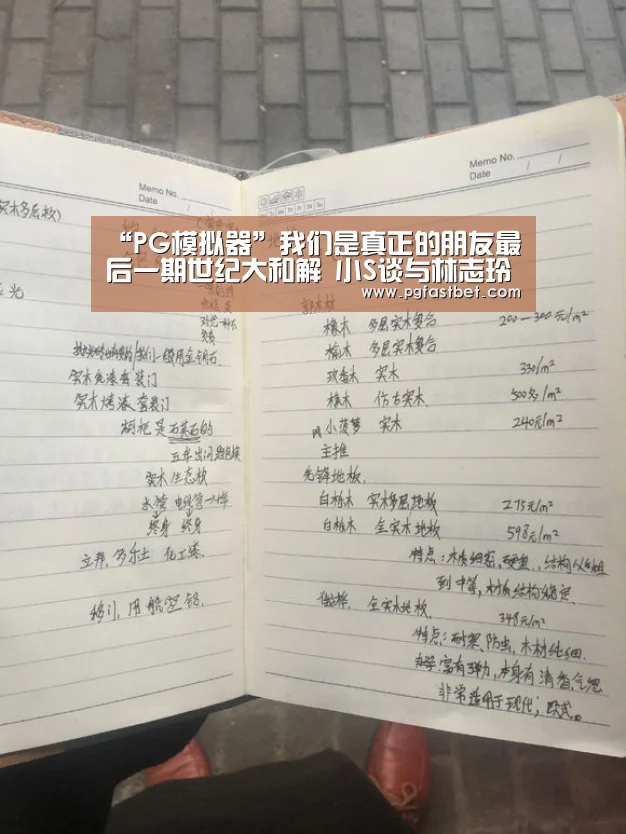 Memo No.
Date / /
实木多层板)
实木免漆套装门
实木烤漆套装门
钢把是石墨石的
五年出问题包换
实木生态板
水管 电线管一以年
终身 终身
立邦,多乐士 化工漆
移门,用航空铝.
Memo No.
Date / /
“PG模拟器”我们是真正的朋友最
后一期世纪大和解 小S谈与林志玲
www.pgfastbet.com
橡木 多层实木复合 200—300元/m²
榆木 多层实木复合
实木 330/m²
橡木 仿古实木. 300多/m²
小菠萝 实木 240元/m²
主推
先锋地板.
白柏木 实木多层地板 275元/m²
白柏木 全实木地板 598元/m²
特点:木质细密,硬重..结构从细
到中等,材质结构稳定.
全实木地板 348元/m²
特点:耐寒、防虫,木材纯细.
富有弹力,本身有清香气息
非常适用于现代;欧式。